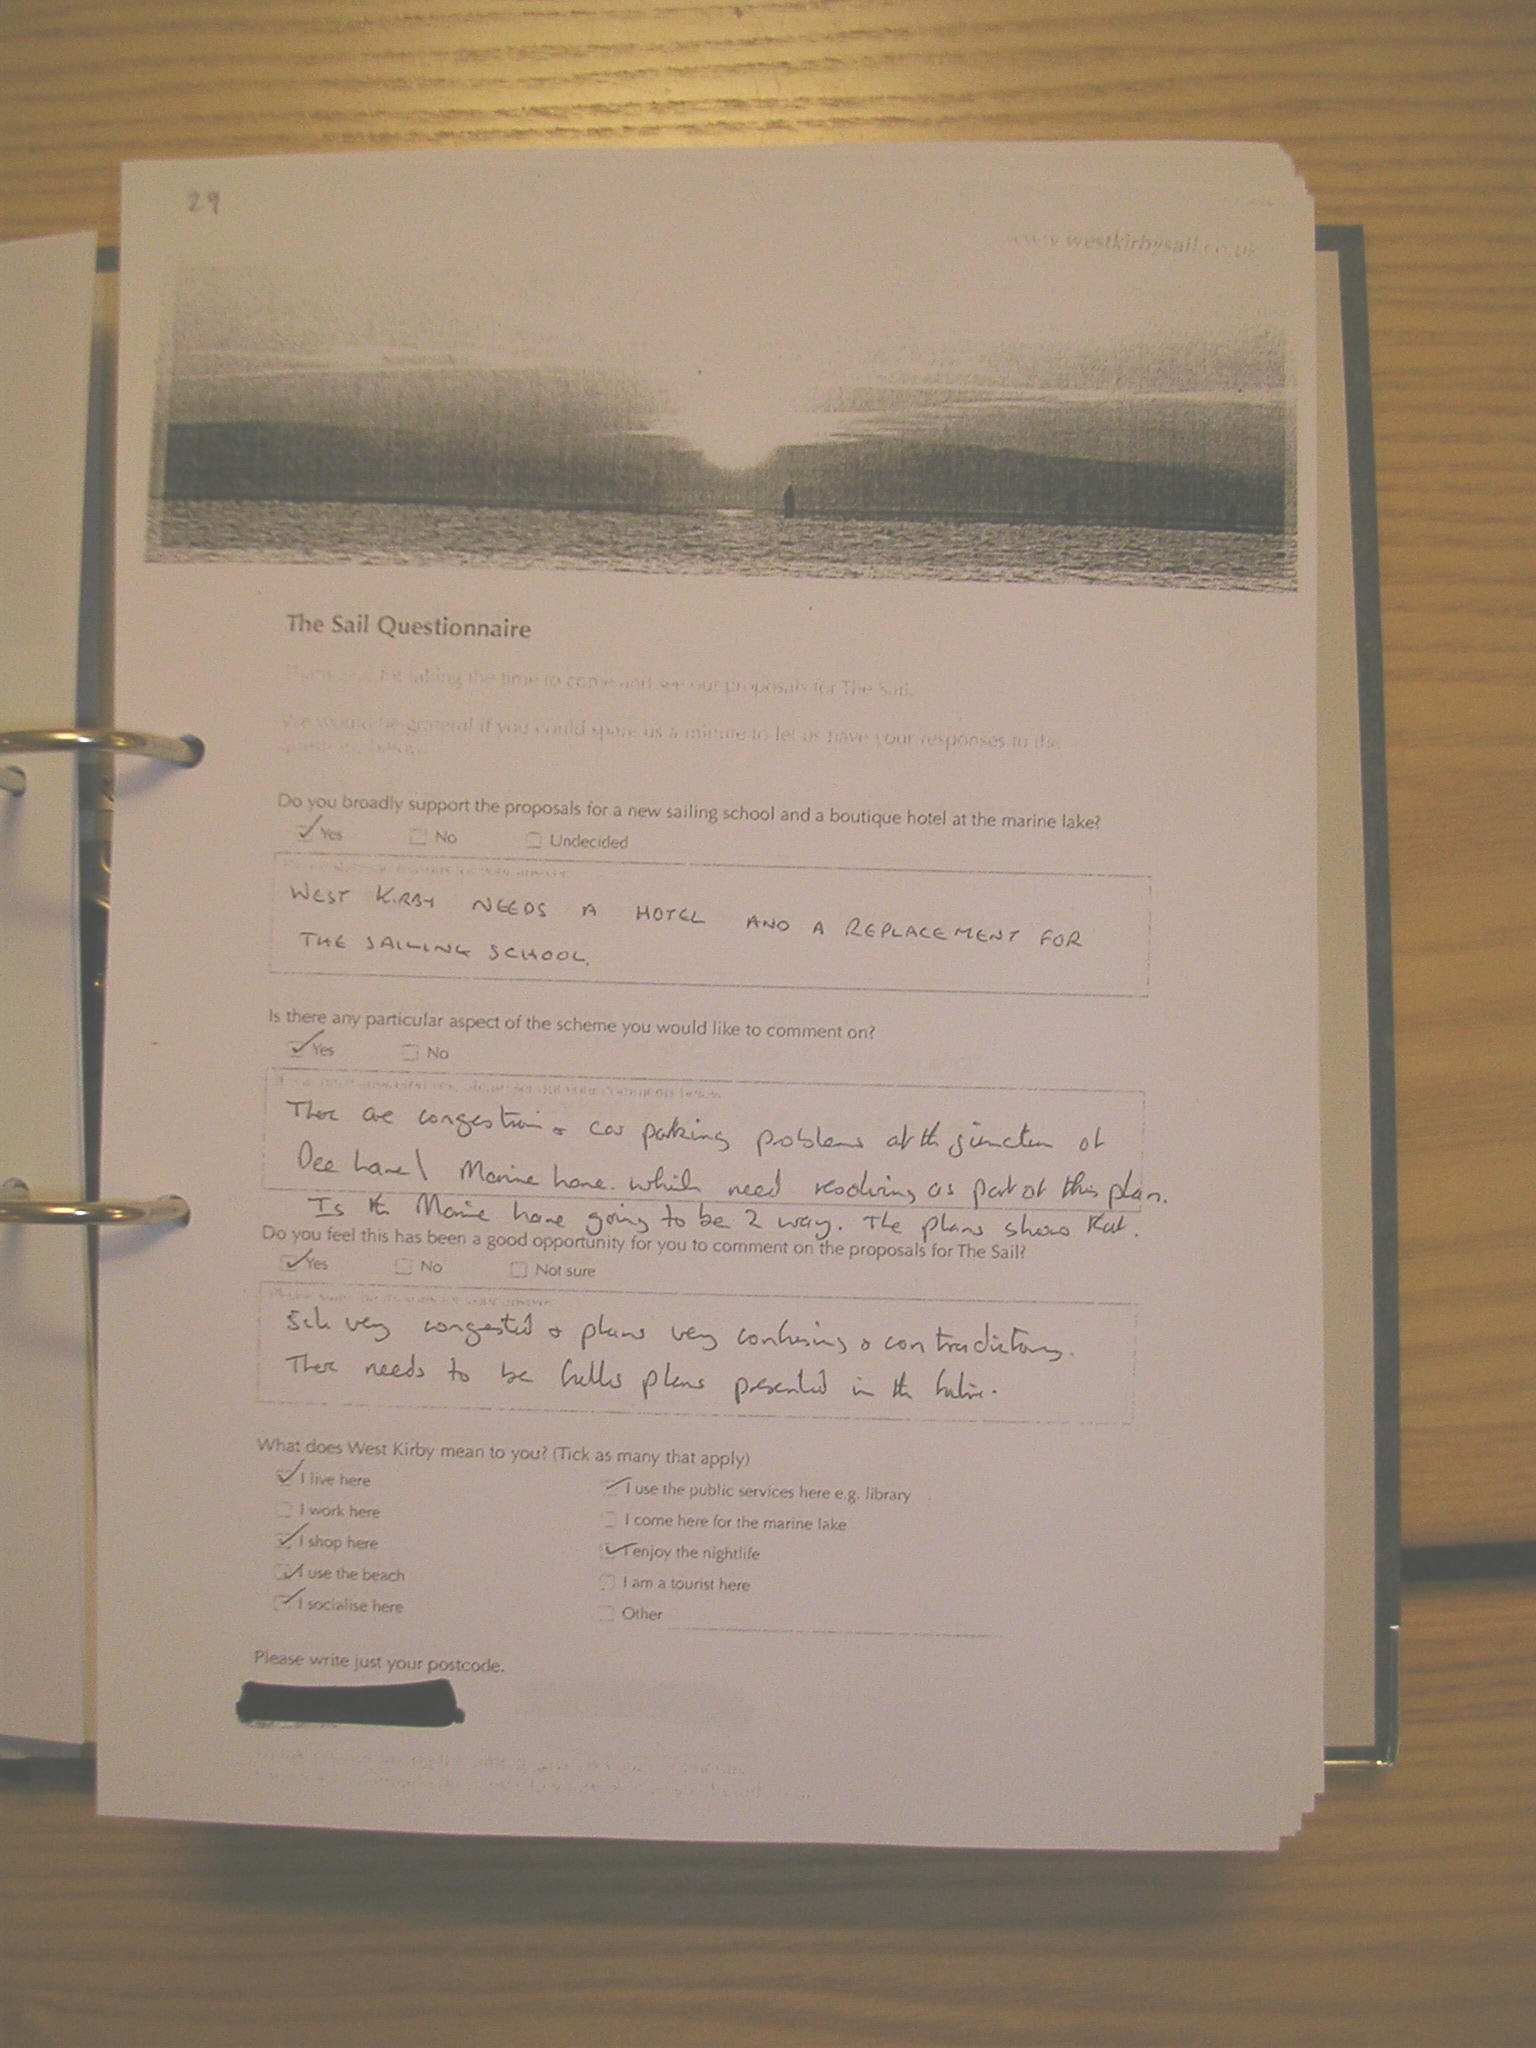 29
www.westkirbysail.co.uk
The Sail Questionnaire
Thank you for taking the time to come and see our proposals for The Sail.
We would be grateful if you could spare us a minute to let us have your responses to the
questions below.
Do you broadly support the proposals for a new sailing school and a boutique hotel at the marine lake?
Yes No Undecided
WEST KIRBY NEEDS A HOTEL AND A REPLACEMENT FOR
THE SAILING SCHOOL.
Is there any particular aspect of the scheme you would like to comment on?
Yes No
There are congestion & car parking problems at the junction of
Dee Lane \ Marine Lane. which need resolving as part of this plan.
Is the Marine Lane going to be 2 way. The plans shows that.
Do you feel this has been a good opportunity for you to comment on the proposals for The Sail?
Yes No Not sure
very congested & plans very confusing & contradictory.
There needs to be fuller plans presented in the future.
What does West Kirby mean to you? (Tick as many that apply)
I live here I use the public services here e.g. library
I work here I come here for the marine lake
I shop here I enjoy the nightlife
I use the beach I am a tourist here
I socialise here Other
Please write just your postcode.